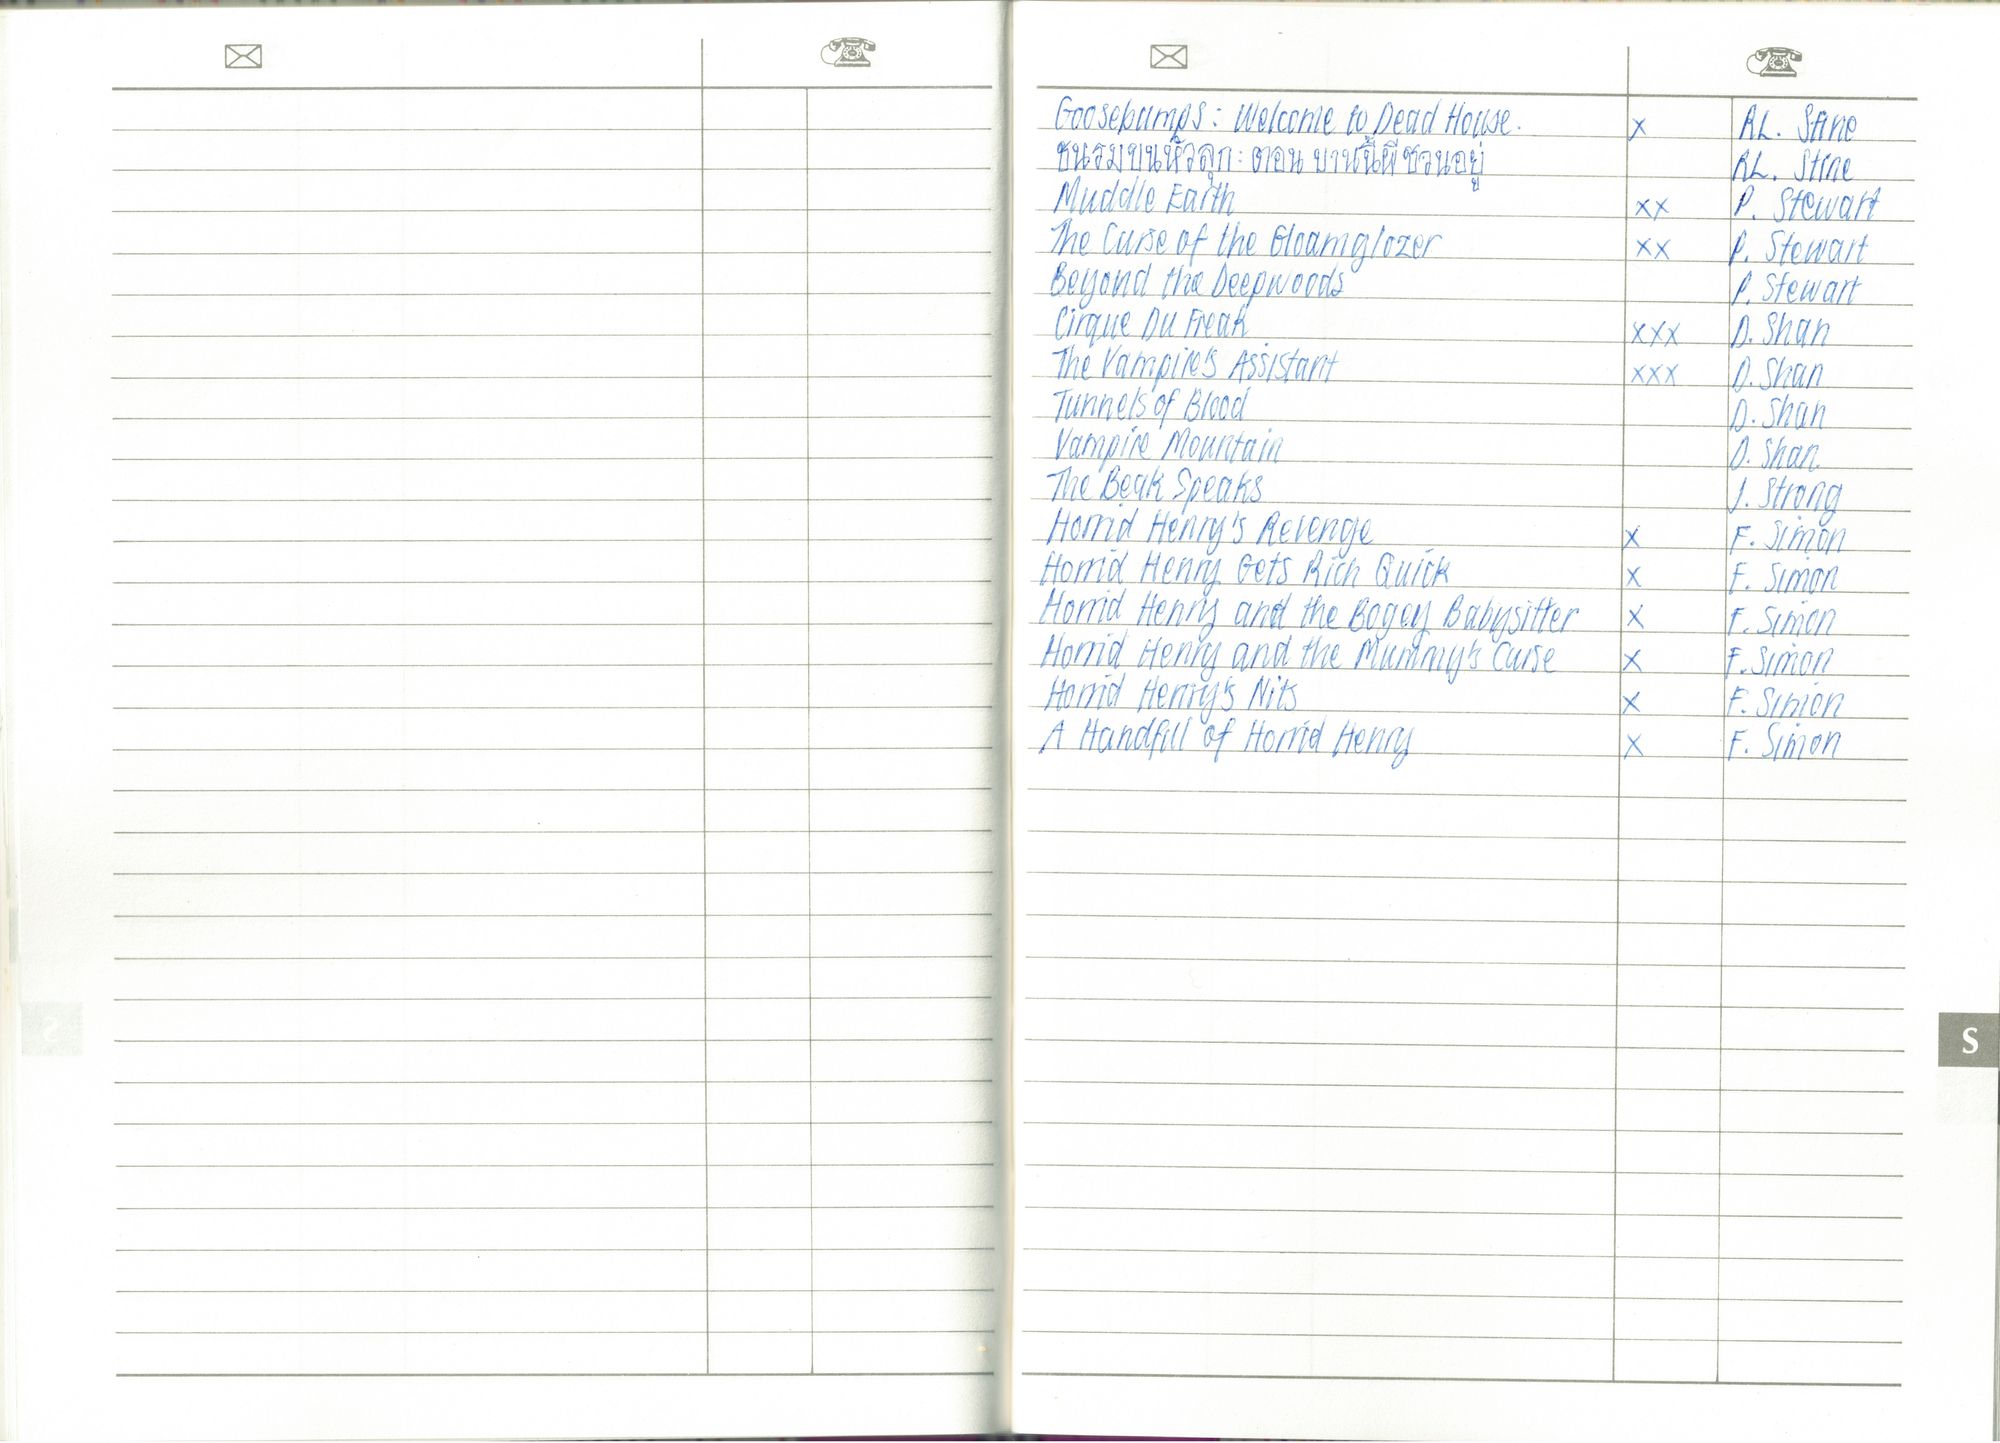 Goosebumps: Welcome to Dead House. x RL. Stine
ชมรมขนหัวลุก: ตอน บานนี้ผีชวนอยู่ RL. Stine
Muddle Earth xx P. Stewart
The Curse of the Gloamglozer xx P. Stewart
Beyond the Deepwoods P. Stewart
Cirque Du Freak xxx D. Shan
The Vampire's Assistant xxx D. Shan
Tunnels of Blood D. Shan
Vampire Mountain D. Shan
The Beak Speaks J. Strong
Horrid Henry's Revenge x F. Simon
Horrid Henry Gets Rich Quick x F. Simon
Horrid Henry and the Bogey Babysitter x F. Simon
Horrid Henry and the Mummy's Curse x F. Simon
Horrid Henry's Nits x F. Simon
A Handfull of Horrid Henry x F. Simon
S